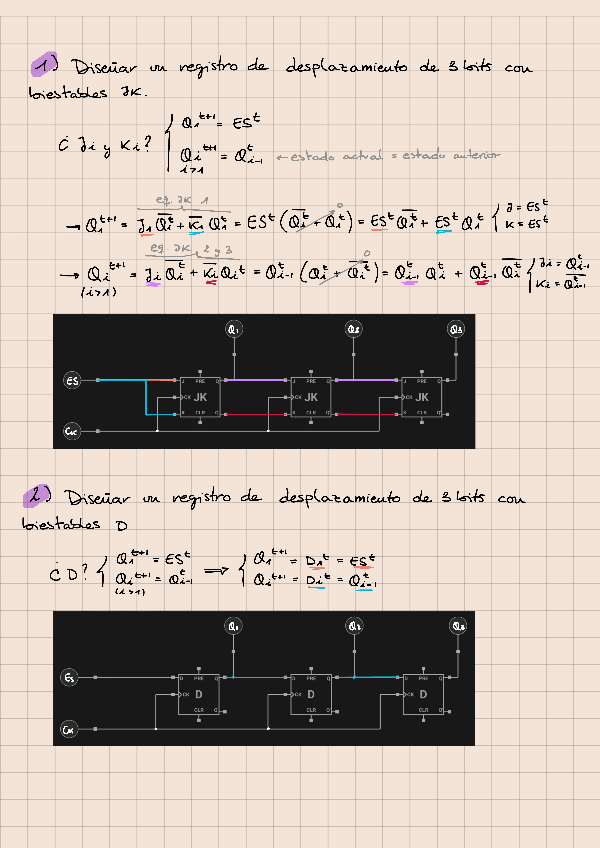 1) Diseñar un registro de desplazamiento de 3 bits con
biestables JK.
¿Ji y Ki? { Q₁ᵗ⁺¹ = ESᵗ
Qiᵗ⁺¹ = Qᵗi-1 ← estado actual = estado anterior
i>1
eq. JK 1
→ Q₁ᵗ⁺¹ = J₁ Q̅₁ᵗ + K̅₁ Q₁ᵗ = ESᵗ (Q̅₁ᵗ + Q₁ᵗ) = ESᵗ Q̅₁ᵗ + ESᵗ Q₁ᵗ { J = ESᵗ
0
K = E̅S̅ᵗ
eq. JK 2 y 3
→ Qiᵗ⁺¹ = Ji Q̅iᵗ + K̅i Qiᵗ = Qᵗi-1 (Qiᵗ + Q̅iᵗ) = Qᵗi-1 Qiᵗ + Qᵗi-1 Q̅iᵗ { Ji = Qᵗi-1
0
(i>1) Ki = Q̅ᵗi-1
Q₁ Q₂ Q₃
ES J PRE Q J PRE Q J PRE Q
CK JK CK JK CK JK
K CLR Q' K CLR Q' K CLR Q'
CLK
2) Diseñar un registro de desplazamiento de 3 bits con
biestables D
¿D? { Q₁ᵗ⁺¹ = ESᵗ ⟹ { Q₁ᵗ⁺¹ = D₁ᵗ = ESᵗ
Qiᵗ⁺¹ = Qᵗi-1 Qiᵗ⁺¹ = Diᵗ = Qᵗi-1
(i>1)
Q₁ Q₂ Q₃
ES D PRE Q D PRE Q D PRE Q
CK D CK D CK D
CLR Q' CLR Q' CLR Q'
CLK